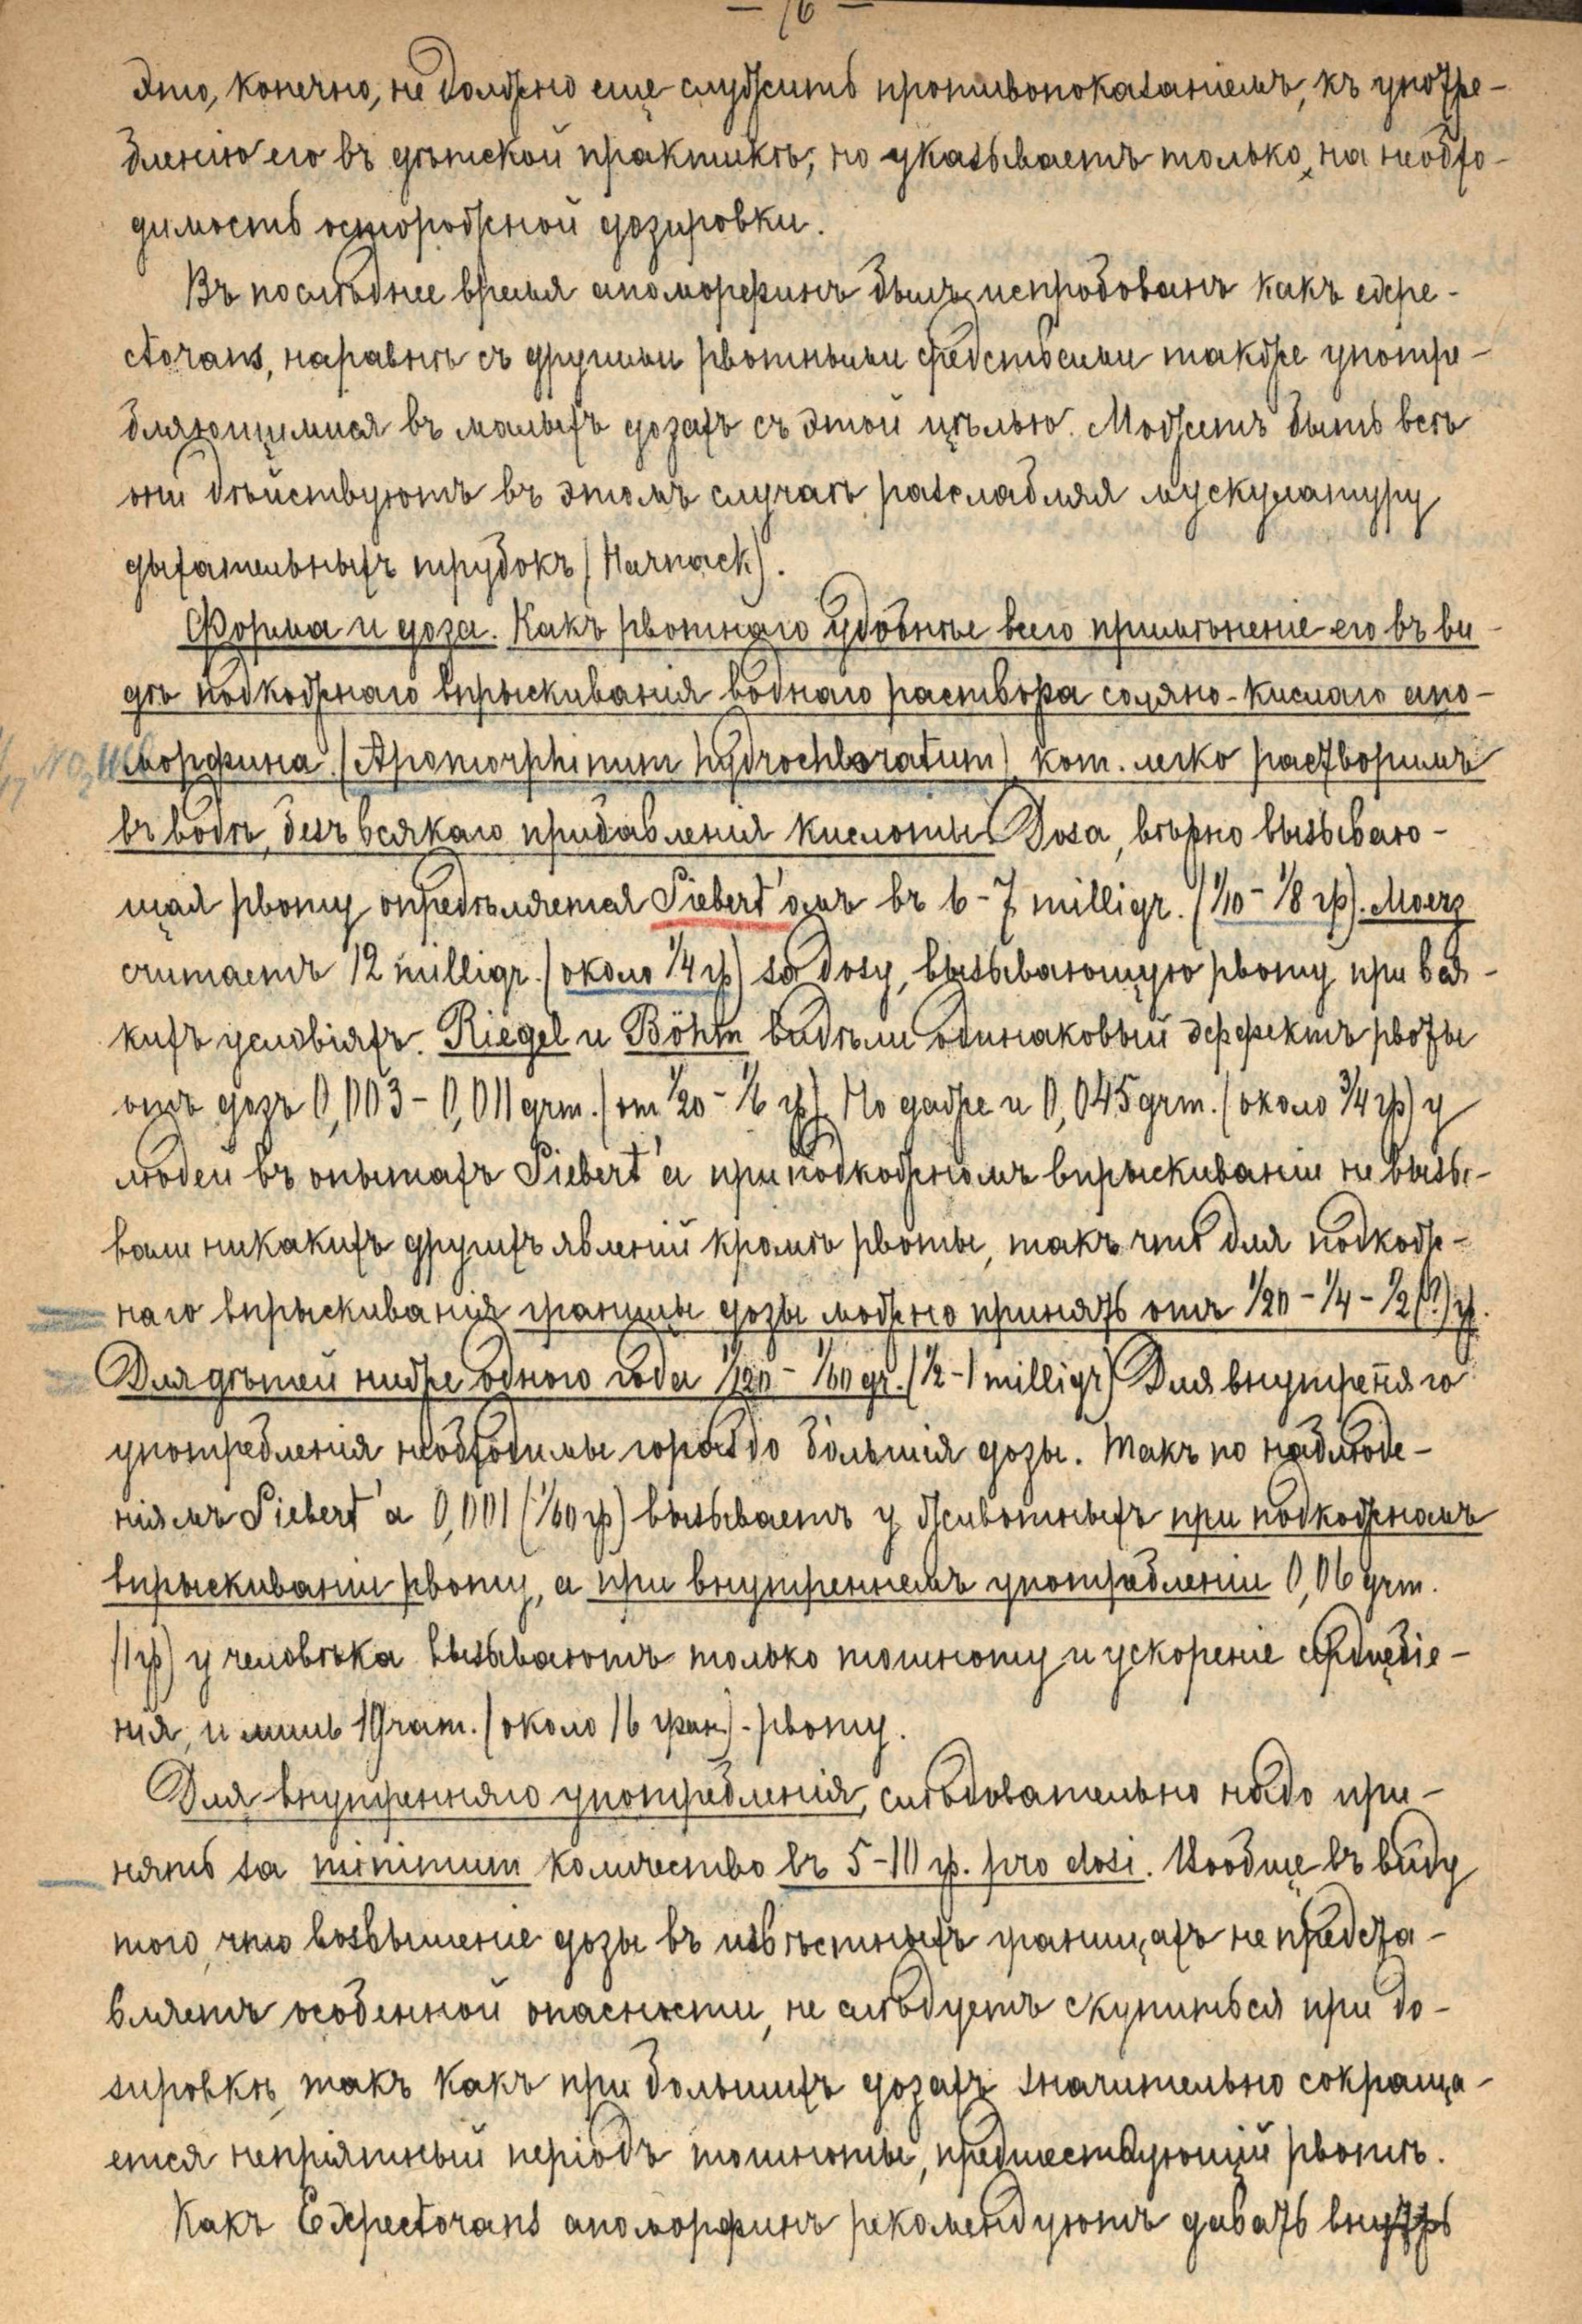 — 76 —
это, конечно, не должно еще служить противопоказаніемъ, къ употре-
бленію его въ дѣтской практикѣ, но указываетъ только на необхо-
димость осторожной дозировки.
Въ послѣднее время апоморфинъ былъ испробованъ какъ expe-
ctorans, наравнѣ съ другими рвотными средствами также употре-
бляющимися въ малыхъ дозахъ съ этой цѣлью. Можетъ быть всѣ
они дѣйствуютъ въ этомъ случаѣ разслабляя мускулатуру
дыхательныхъ трубокъ (Harnack).
Форма и доза. Какъ рвотнаго удобнѣе всего примѣненіе его въ ви-
дѣ подкожнаго впрыскиванія воднаго раствора соляно-кислаго апо-
морфина (Apomorphinum hydrochloratum), кот. легко растворимъ
въ водѣ, безъ всякаго прибавленія кислоты. Доза, вѣрно вызываю-
щая рвоту опредѣляется Siebert'омъ въ 6-7 milligr. (1/10 - 1/8 гр). Moerz
считаетъ 12 milligr. (около 1/4 гр) за дозу, вызывающую рвоту при вся-
кихъ условіяхъ. Riegel и Böhm видѣли одинаковый эффектъ рвоты
отъ дозъ 0,003 - 0,011 grm. (от 1/20 - 1/6 гр). Но даже и 0,045 grm. (около 3/4 гр) у
людей въ опытахъ Siebert'а при подкожномъ впрыскиваніи не вызы-
вали никакихъ другихъ явленій кромѣ рвоты, такъ что для подкож-
наго впрыскиванія границы дозы можно принять отъ 1/20 - 1/4 - 1/2 (!?) гр.
Для дѣтей ниже одного года 1/120 - 1/60 gr. (1/2 - 1 milligr) Для внутренняго
употребленія необходимы гораздо большія дозы. Такъ по наблюде-
ніямъ Siebert'а 0,001 (1/60 гр) вызываетъ у животныхъ при подкожномъ
впрыскиваніи рвоту, а при внутреннемъ употребленіи 0,06 grm.
(1 гр) у человѣка вызываютъ только тошноту и ускореніе сердцебіе-
нія, и лишь 1 Gram. (около 16 гран) - рвоту.
Для внутренняго употребленія, слѣдовательно надо при-
нять за minimum количество въ 5-10 гр. pro dosi. Вообще въ виду
того, что возвышеніе дозы въ извѣстныхъ границахъ не предста-
вляетъ особенной опасности, не слѣдуетъ скупиться при до-
зировкѣ, такъ какъ при большихъ дозахъ значительно сокраща-
ется непріятный періодъ тошноты, предшествующій рвотѣ.
Какъ Expectorans апоморфинъ рекомендуютъ давать внутрь